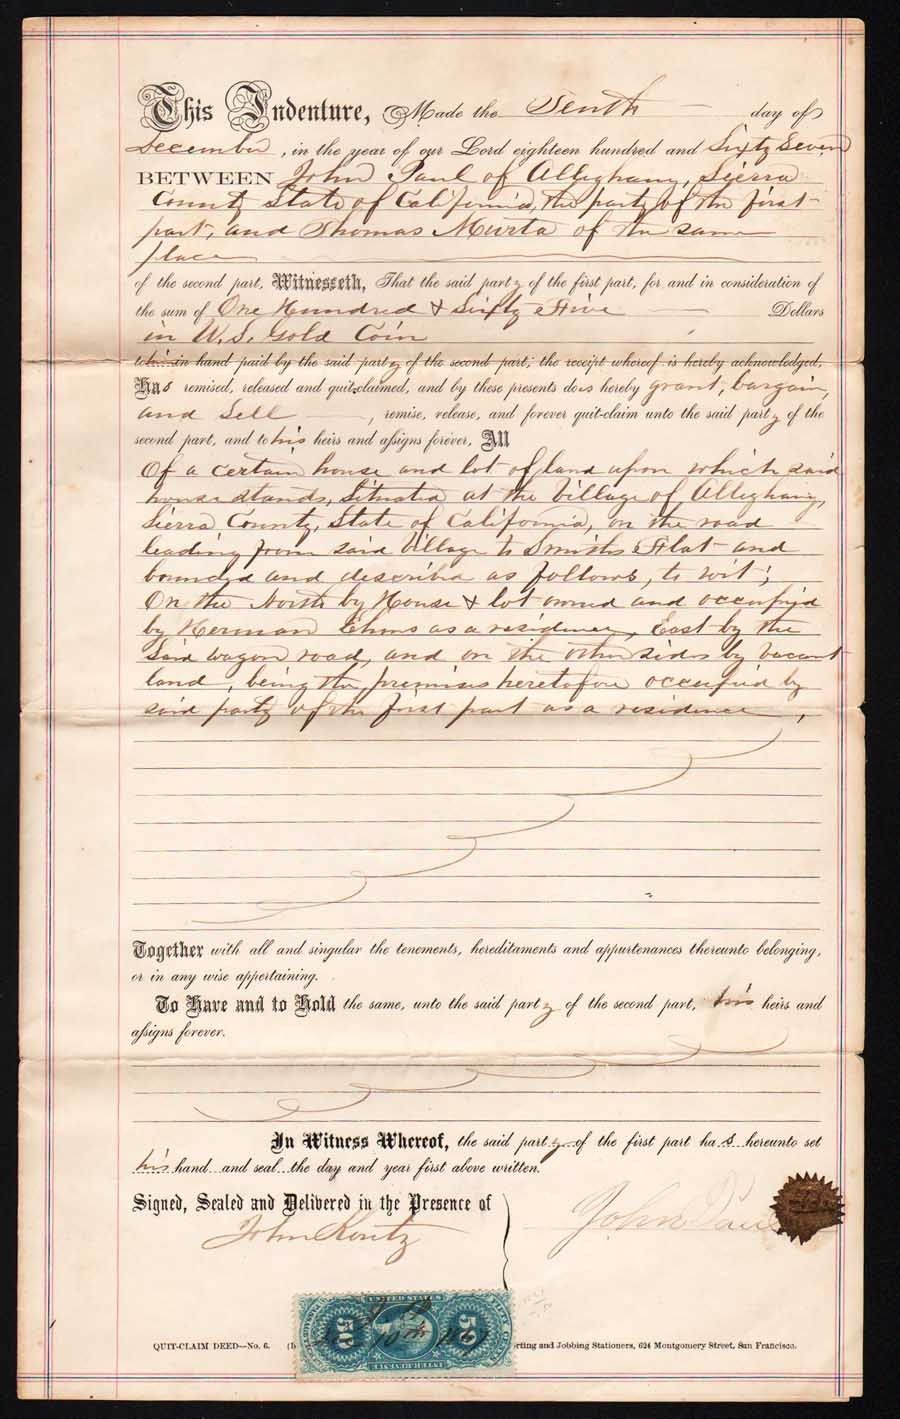 This Indenture, Made the Tenth day of
December, in the year of our Lord eighteen hundred and Sixty Seven
BETWEEN John Paul of Alleghany, Sierra
County State of California, the party of the first
part, and Thomas Murta of the same
place
of the second part, Witnesseth, That the said party of the first part, for and in consideration of
the sum of One Hundred & Sixty Five Dollars
in U.S. Gold Coin
to him in hand paid by the said party of the second part; the receipt whereof is hereby acknowledged,
Has remised, released and quit-claimed, and by these presents does hereby grant, bargain,
and Sell, remise, release, and forever quit-claim unto the said party of the
second part, and to his heirs and assigns forever, All
Of a certain house and lot of land upon which said
house stands, Situated at the Village of Alleghany,
Sierra County, State of California, on the road
leading from said Village to Smiths Flat and
bounded and described as follows, to wit;
On the North by House & lot owned and occupied
by Herman as a residence, East by the
Said wagon road, and on the other sides by vacant
land, being the premises heretofore occupied by
said party of the first part as a residence,
Together with all and singular the tenements, hereditaments and appurtenances thereunto belonging,
or in any wise appertaining.
To Have and to Hold the same, unto the said party of the second part, his heirs and
assigns forever.
In Witness Whereof, the said party of the first part has hereunto set
his hand and seal the day and year first above written.
Signed, Sealed and Delivered in the Presence of
John Kontz
John Paul
UNITED STATES
50 50
INTER. REVENUE
QUIT-CLAIM DEED—No. 6. rting and Jobbing Stationers, 624 Montgomery Street, San Francisco.